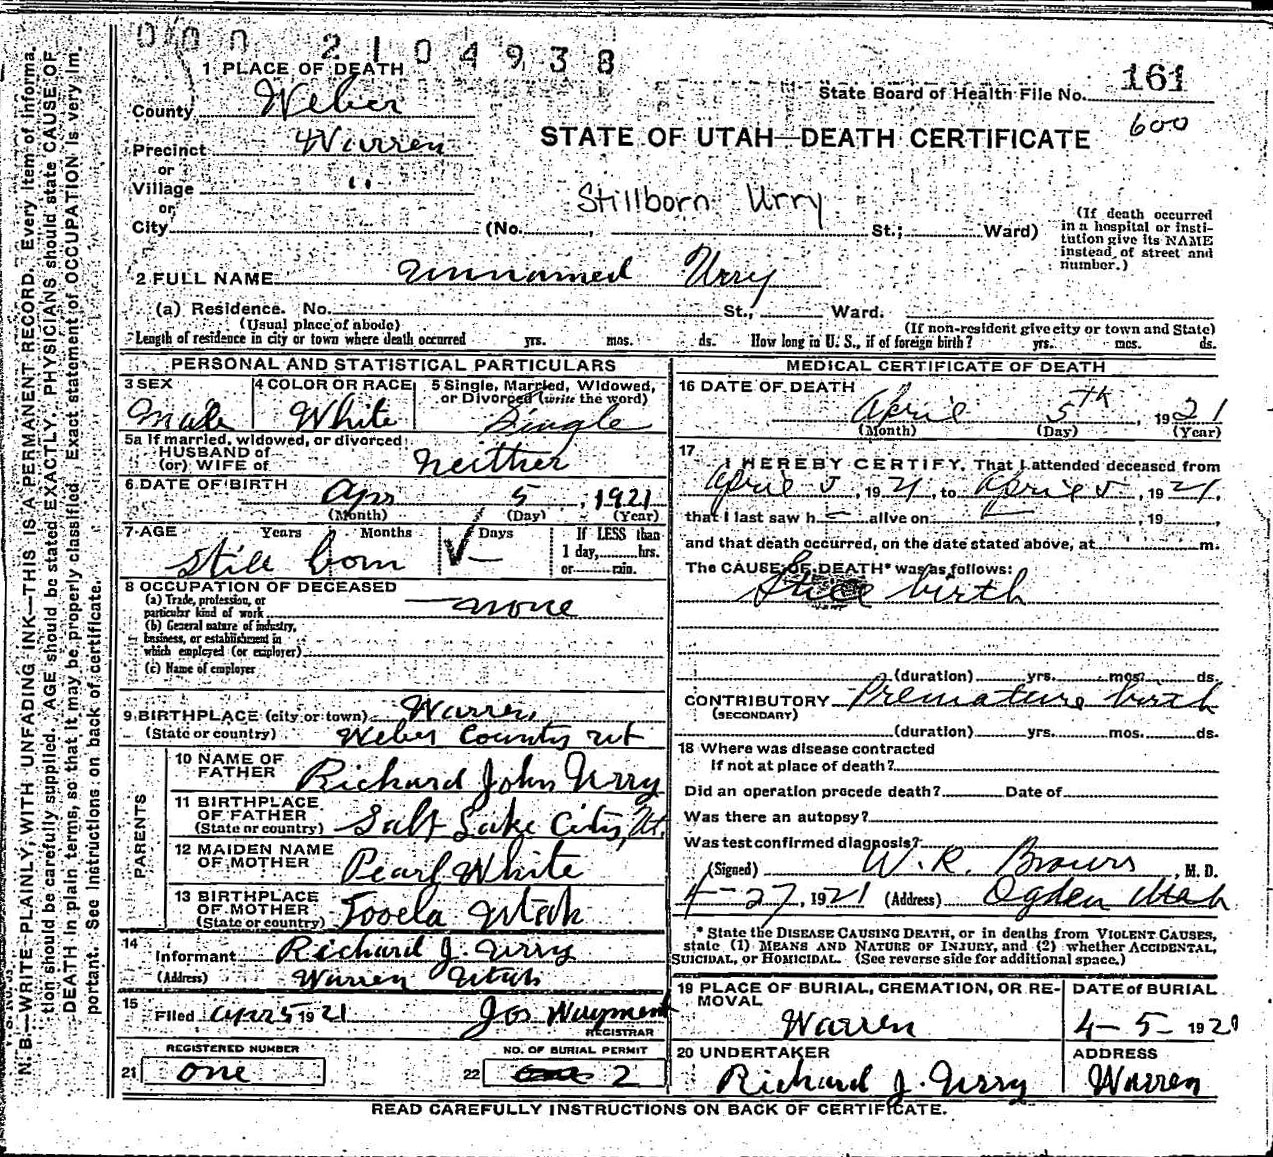 000 2104938
1 PLACE OF DEATH
County Weber
State Board of Health File No. 161
600
Precinct Warren
STATE OF UTAH—DEATH CERTIFICATE
or
Village "
Stillborn Urry
or
City (No. , St.; Ward)
(If death occurred in a hospital or insti-tution give its NAME instead of street and number.)
2 FULL NAME Unnamed Urry
(a) Residence. No. St., Ward.
(Usual place of abode) (If non-resident give city or town and State)
Length of residence in city or town where death occurred yrs. mos. ds. How long in U. S., if of foreign birth? yrs. mos. ds.
PERSONAL AND STATISTICAL PARTICULARS
3 SEX Male
4 COLOR OR RACE White
5 Single, Married, Widowed, or Divorced (write the word) Single
5a If married, widowed, or divorced
HUSBAND of
(or) WIFE of Neither
6 DATE OF BIRTH Apr 5, 1921
(Month) (Day) (Year)
7 AGE Years Months Days
Still born
If LESS than
1 day, hrs.
or min.
8 OCCUPATION OF DECEASED
(a) Trade, profession, or
particular kind of work none
(b) General nature of industry,
business, or establishment in
which employed (or employer)
(c) Name of employer
9 BIRTHPLACE (city or town) Warren
(State or country) Weber County Ut
PARENTS
10 NAME OF FATHER Richard John Urry
11 BIRTHPLACE OF FATHER (State or country) Salt Lake City, Ut.
12 MAIDEN NAME OF MOTHER Pearl White
13 BIRTHPLACE OF MOTHER (State or country) Tooela Utah
14 Informant Richard J. Urry
(Address) Warren Utah
15 Filed Apr 5 1921 Jos Wayment
REGISTRAR
REGISTERED NUMBER
21 one
NO. OF BURIAL PERMIT
22 2
MEDICAL CERTIFICATE OF DEATH
16 DATE OF DEATH
April 5th, 1921
(Month) (Day) (Year)
17
I HEREBY CERTIFY, That I attended deceased from
April 5, 1921, to April 5, 1921.
that I last saw h alive on , 19 ,
and that death occurred, on the date stated above, at m.
The CAUSE OF DEATH* was as follows:
Still birth
(duration) yrs. mos. ds.
CONTRIBUTORY Premature birth
(SECONDARY)
(duration) yrs. mos. ds.
18 Where was disease contracted
If not at place of death?
Did an operation precede death? Date of
Was there an autopsy?
Was test confirmed diagnosis?
(Signed) W. R. Browns, M. D.
4-27, 1921 (Address) Ogden Utah
* State the DISEASE CAUSING DEATH, or in deaths from VIOLENT CAUSES,
state (1) MEANS AND NATURE OF INJURY, and (2) whether ACCIDENTAL,
SUICIDAL, or HOMICIDAL. (See reverse side for additional space.)
19 PLACE OF BURIAL, CREMATION, OR RE-MOVAL
Warren
DATE of BURIAL
4-5-1921
20 UNDERTAKER
Richard J. Urry
ADDRESS
Warren
READ CAREFULLY INSTRUCTIONS ON BACK OF CERTIFICATE.
N. B.—WRITE PLAINLY, WITH UNFADING INK—THIS IS A PERMANENT RECORD. Every item of informa-
tion should be carefully supplied. AGE should be stated EXACTLY. PHYSICIANS should state CAUSE OF
DEATH in plain terms, so that it may be properly classified. Exact statement of OCCUPATION is very im-
portant. See Instructions on back of certificate.